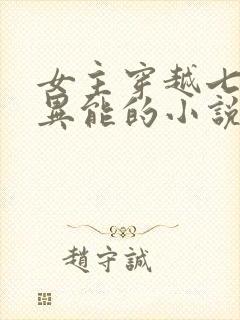 女主穿越七
異能的小說
趙守誠